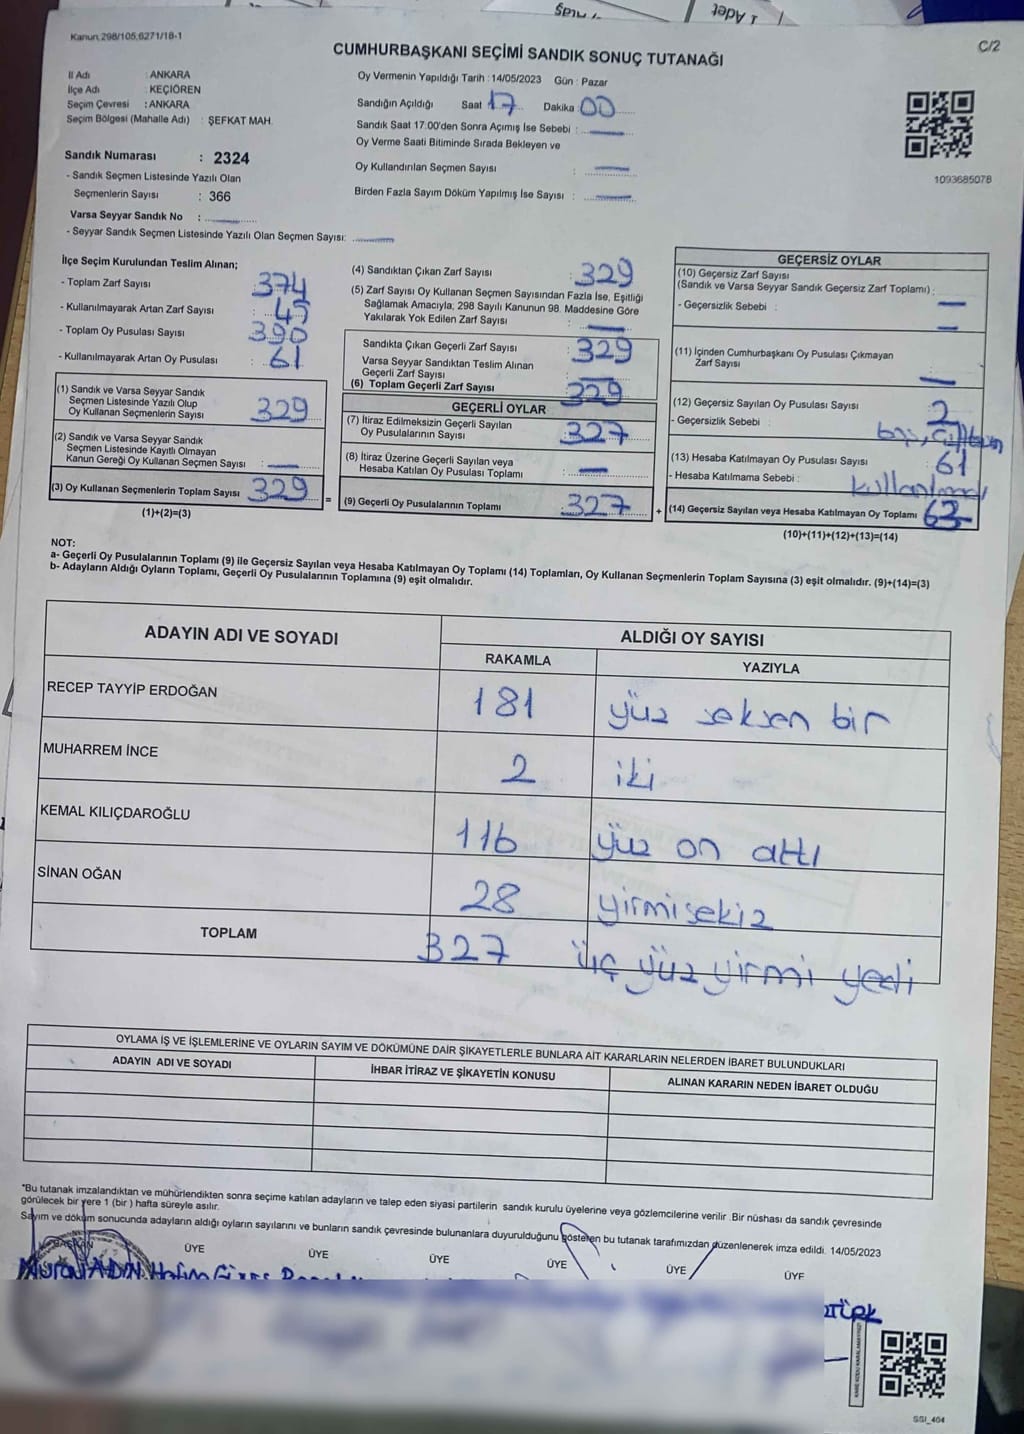 1 Adet
Kanun:298/105;6271/18-1
C/2
CUMHURBAŞKANI SEÇİMİ SANDIK SONUÇ TUTANAĞI
İl Adı : ANKARA
İlçe Adı : KEÇİÖREN
Seçim Çevresi : ANKARA
Seçim Bölgesi (Mahalle Adı) : ŞEFKAT MAH.
Sandık Numarası : 2324
- Sandık Seçmen Listesinde Yazılı Olan
Seçmenlerin Sayısı : 366
Varsa Seyyar Sandık No : —
- Seyyar Sandık Seçmen Listesinde Yazılı Olan Seçmen Sayısı: —
Oy Vermenin Yapıldığı Tarih : 14/05/2023 Gün : Pazar
Sandığın Açıldığı Saat 17 Dakika : 00
Sandık Saat 17:00'den Sonra Açımış İse Sebebi : —
Oy Verme Saati Bitiminde Sırada Bekleyen ve
Oy Kullandırılan Seçmen Sayısı : —
Birden Fazla Sayım Döküm Yapılmış İse Sayısı : —
1093685078
İlçe Seçim Kurulundan Teslim Alınan;
- Toplam Zarf Sayısı : 374
- Kullanılmayarak Artan Zarf Sayısı : 45
- Toplam Oy Pusulası Sayısı : 390
- Kullanılmayarak Artan Oy Pusulası : 61
(1) Sandık ve Varsa Seyyar Sandık
Seçmen Listesinde Yazılı Olup
Oy Kullanan Seçmenlerin Sayısı : 329
(2) Sandık ve Varsa Seyyar Sandık
Seçmen Listesinde Kayıtlı Olmayan
Kanun Gereği Oy Kullanan Seçmen Sayısı : —
(3) Oy Kullanan Seçmenlerin Toplam Sayısı : 329
(1)+(2)=(3)
=
(4) Sandıktan Çıkan Zarf Sayısı : 329
(5) Zarf Sayısı Oy Kullanan Seçmen Sayısından Fazla İse, Eşitliği
Sağlamak Amacıyla, 298 Sayılı Kanunun 98. Maddesine Göre
Yakılarak Yok Edilen Zarf Sayısı : —
Sandıkta Çıkan Geçerli Zarf Sayısı : 329
Varsa Seyyar Sandıktan Teslim Alınan
Geçerli Zarf Sayısı : —
(6) Toplam Geçerli Zarf Sayısı : 329
GEÇERLİ OYLAR
(7) İtiraz Edilmeksizin Geçerli Sayılan
Oy Pusulalarının Sayısı : 327
(8) İtiraz Üzerine Geçerli Sayılan veya
Hesaba Katılan Oy Pusulası Toplamı : —
(9) Geçerli Oy Pusulalarının Toplamı : 327
+
GEÇERSİZ OYLAR
(10) Geçersiz Zarf Sayısı
(Sandık ve Varsa Seyyar Sandık Geçersiz Zarf Toplamı) : —
- Geçersizlik Sebebi : —
(11) İçinden Cumhurbaşkanı Oy Pusulası Çıkmayan
Zarf Sayısı : —
(12) Geçersiz Sayılan Oy Pusulası Sayısı : 2
- Geçersizlik Sebebi :
(13) Hesaba Katılmayan Oy Pusulası Sayısı : 61
- Hesaba Katılmama Sebebi :
(14) Geçersiz Sayılan veya Hesaba Katılmayan Oy Toplamı : 63
(10)+(11)+(12)+(13)=(14)
NOT:
a- Geçerli Oy Pusulalarının Toplamı (9) ile Geçersiz Sayılan veya Hesaba Katılmayan Oy Toplamı (14) Toplamları, Oy Kullanan Seçmenlerin Toplam Sayısına (3) eşit olmalıdır. (9)+(14)=(3)
b- Adayların Aldığı Oyların Toplamı, Geçerli Oy Pusulalarının Toplamına (9) eşit olmalıdır.
ADAYIN ADI VE SOYADI ALDIĞI OY SAYISI
RAKAMLA YAZIYLA
RECEP TAYYİP ERDOĞAN 181 yüz seksen bir
MUHARREM İNCE 2 iki
KEMAL KILIÇDAROĞLU 116 yüz on altı
SİNAN OĞAN 28 yirmisekiz
TOPLAM 327 üç yüz yirmi yedi
OYLAMA İŞ VE İŞLEMLERİNE VE OYLARIN SAYIM VE DÖKÜMÜNE DAİR ŞİKAYETLERLE BUNLARA AİT KARARLARIN NELERDEN İBARET BULUNDUKLARI
ADAYIN ADI VE SOYADI İHBAR İTİRAZ VE ŞİKAYETİN KONUSU ALINAN KARARIN NEDEN İBARET OLDUĞU
*Bu tutanak imzalandıktan ve mühürlendikten sonra seçime katılan adayların ve talep eden siyasi partilerin sandık kurulu üyelerine veya gözlemcilerine verilir .Bir nüshası da sandık çevresinde
görülecek bir yere 1 (bir ) hafta süreyle asılır.
Sayım ve döküm sonucunda adayların aldığı oyların sayılarını ve bunların sandık çevresinde bulunanlara duyurulduğunu gösteren bu tutanak tarafımızdan düzenlenerek imza edildi. 14/05/2023
BAŞKAN ÜYE ÜYE ÜYE ÜYE ÜYE ÜYE
SGI_404